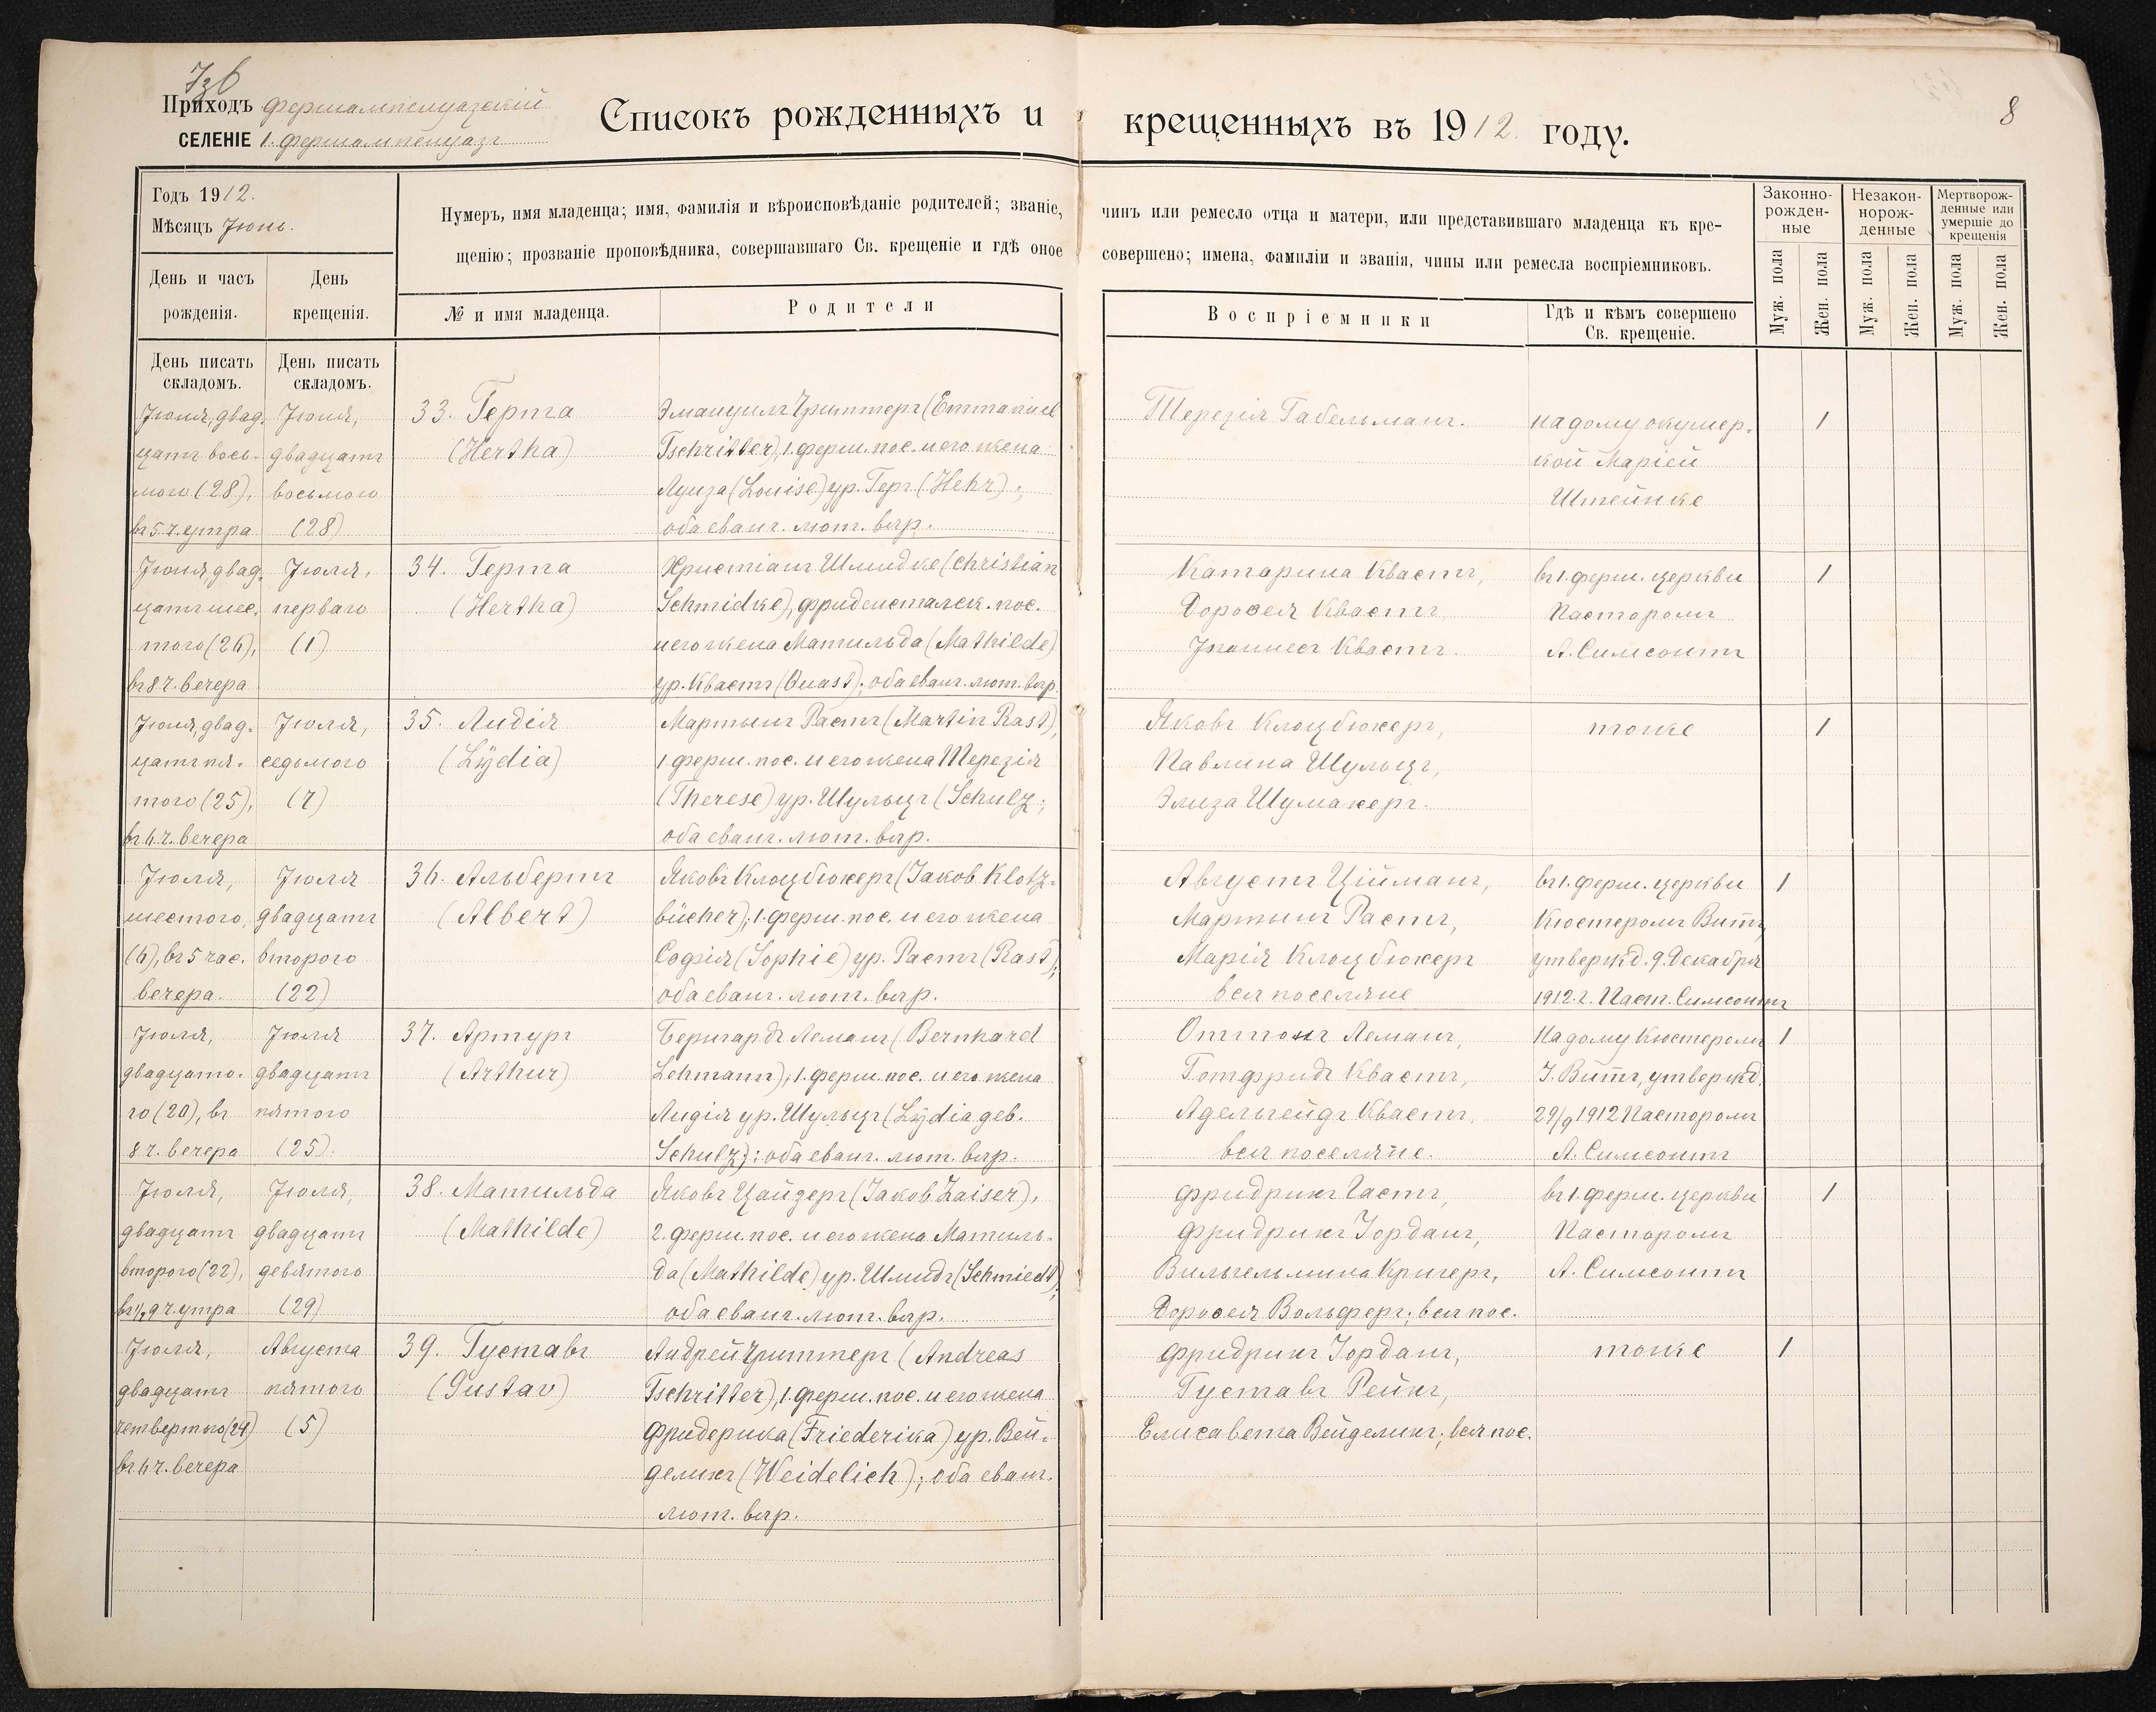 7зб
Приходъ Фершампенуазскій
СЕЛЕНІЕ 1. Фершампенуазъ
Списокъ рожденныхъ и крещенныхъ въ 1912 году.
8
Годъ 1912.
Мѣсяцъ Іюнь.
День и часъ рожденія.
День крещенія.
Нумеръ, имя младенца; имя, фамилія и вѣроисповѣданіе родителей; званіе, чинъ или ремесло отца и матери, или представившаго младенца къ кре-
щенію; прозваніе проповѣдника, совершавшаго Св. крещеніе и гдѣ оное совершено; имена, фамиліи и званія, чины или ремесла воспріемниковъ.
№ и имя младенца.
Родители
Воспріемники
Гдѣ и кѣмъ совершено
Св. крещеніе.
Законно-
рожден-
ные
Незакон-
норож-
денные
Мертворож-
денные или
умершіе до
крещенія
Муж. пола
Жен. пола
Муж. пола
Жен. пола
Муж. пола
Жен. пола
День писать
складомъ.
День писать
складомъ.
Іюня, двад-
цать вось-
мого (28),
въ 5 ч. утра
Іюня,
двадцать
восьмого
(28)
33. Герта
(Hertha)
Эмануилъ Чриттеръ (Emmanuel
Tschritter), 1. ферш. пос. и его жена
Луиза (Louise) ур. Геръ (Hehr);
оба еванг. лют. вѣр.
Терезія Габельманъ.
на дому акушер-
кой Маріей
Штейнке
1
Іюня, двад-
цать шес-
того (26),
въ 8 ч. вечера
Іюля,
перваго
(1)
34. Герта
(Hertha)
Христіанъ Шмидке (Christian
Schmidke), фриденстальск. пос.
и его жена Матильда (Mathilde)
ур. Квастъ (Quast); оба еванг. лют. вѣр.
Катарина Квастъ,
Доровея Квастъ
Іоганнесъ Квастъ.
въ 1. ферш. церкви
Пасторомъ
А. Симсонъ
1
Іюня, двад-
цать пя-
того (25),
въ 6 ч. вечера
Іюля,
седьмого
(7)
35. Лидія
(Lydia)
Мартынъ Растъ (Martin Rast),
1. ферш. пос. и его жена Терезія
(Therese) ур. Шульцъ (Schulz;
оба еванг. лют. вѣр.
Яковъ Клоцбюхеръ,
Павлина Шульцъ,
Элиза Шумахеръ.
тоже
1
Іюля,
шестого,
(6), въ 5 час.
вечера.
Іюля
двадцать
второго
(22)
36. Альбертъ
(Albert)
Яковъ Клоцбюхеръ (Jakob Klotz-
bücher); 1. ферш. пос. и его жена
Софія (Sophie) ур. Растъ (Rast);
оба еванг. лют. вѣр.
Августъ Ційманъ,
Мартынъ Растъ,
Марія Клоцбюхеръ
всѣ поселяне
въ 1. ферш. церкви
Кюстеромъ Виттъ,
утвержд. 9. Декабря
1912. г. Паст. Симсонъ
1
Іюля,
двадцато-
го (20), въ
8 ч. вечера
Іюля
двадцать
пятого
(25).
37. Артуръ
(Arthur)
Бернгардъ Леманъ (Bernhard
Lehmann); 1. ферш. пос. и его жена
Лидія ур. Шульцъ (Lydia geb.
Schulz); оба еванг. лют. вѣр.
Оттонъ Леманъ,
Готфридъ Квастъ,
Адельгейдъ Квастъ,
всѣ поселяне.
На дому Кюстеромъ
І. Виттъ, утвержд.
29/9 1912 Пасторомъ
А. Симсонъ
1
Іюля,
двадцать
второго (22),
въ ½ 9 ч. утра
Іюля,
двадцать
девятого
(29)
38. Матильда
(Mathilde)
Яковъ Цайзеръ (Jakob Zaiser),
2. ферш. пос. и его жена Матиль-
да (Mathilde) ур. Шмидъ (Schmiedt);
оба еванг. лют. вѣр.
Фридрихъ Гастъ,
Фридрихъ Іорданъ,
Вильгельмина Кригеръ,
Доровея Вольферъ; всѣ пос.
въ 1. ферш. церкви
Пасторомъ
А. Симсонъ
1
Іюля,
двадцать
четвертого (24)
въ 6 ч. вечера
Августа
пятого
(5)
39. Густавъ
(Gustav)
Андрей Чриттеръ (Andreas
Tschritter), 1. ферш. пос. и его жена
Фридерика (Friederika) ур. Вей-
делихъ (Weidelich); оба еванг.
лют. вѣр.
Фридрихъ Іорданъ,
Густавъ Рейхъ,
Елисавета Вейделихъ; всѣ пос.
тоже
1